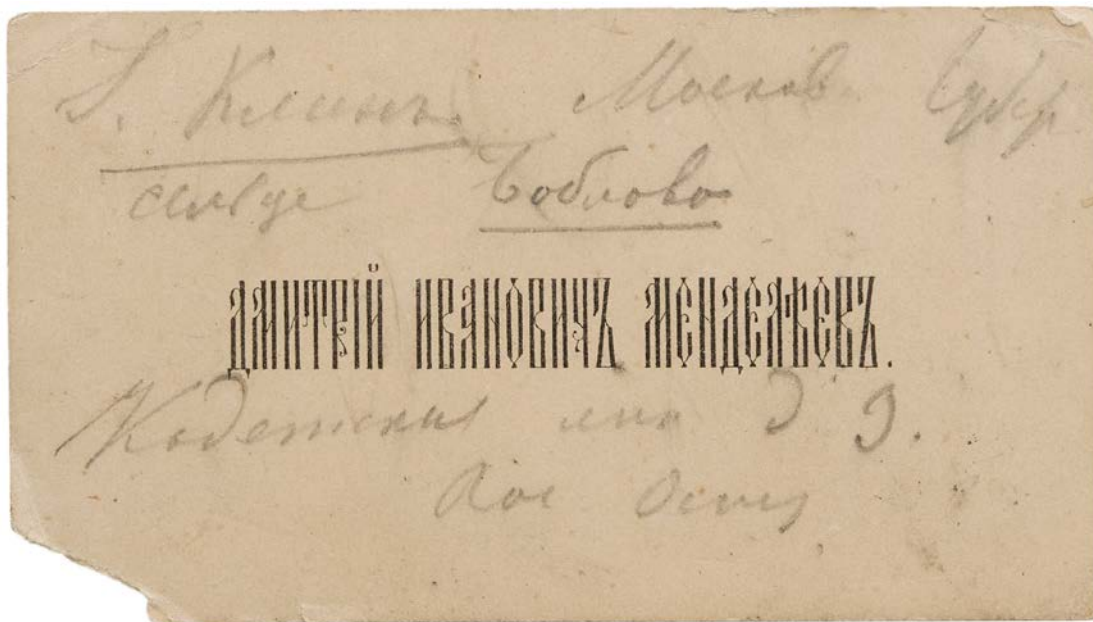 г. Клинъ Москов. Губер
сельце Боблово
ДМИТРІЙ ИВАНОВИЧЪ МЕНДЕЛѢЕВЪ.
Кадетская лин д 9.
Вас